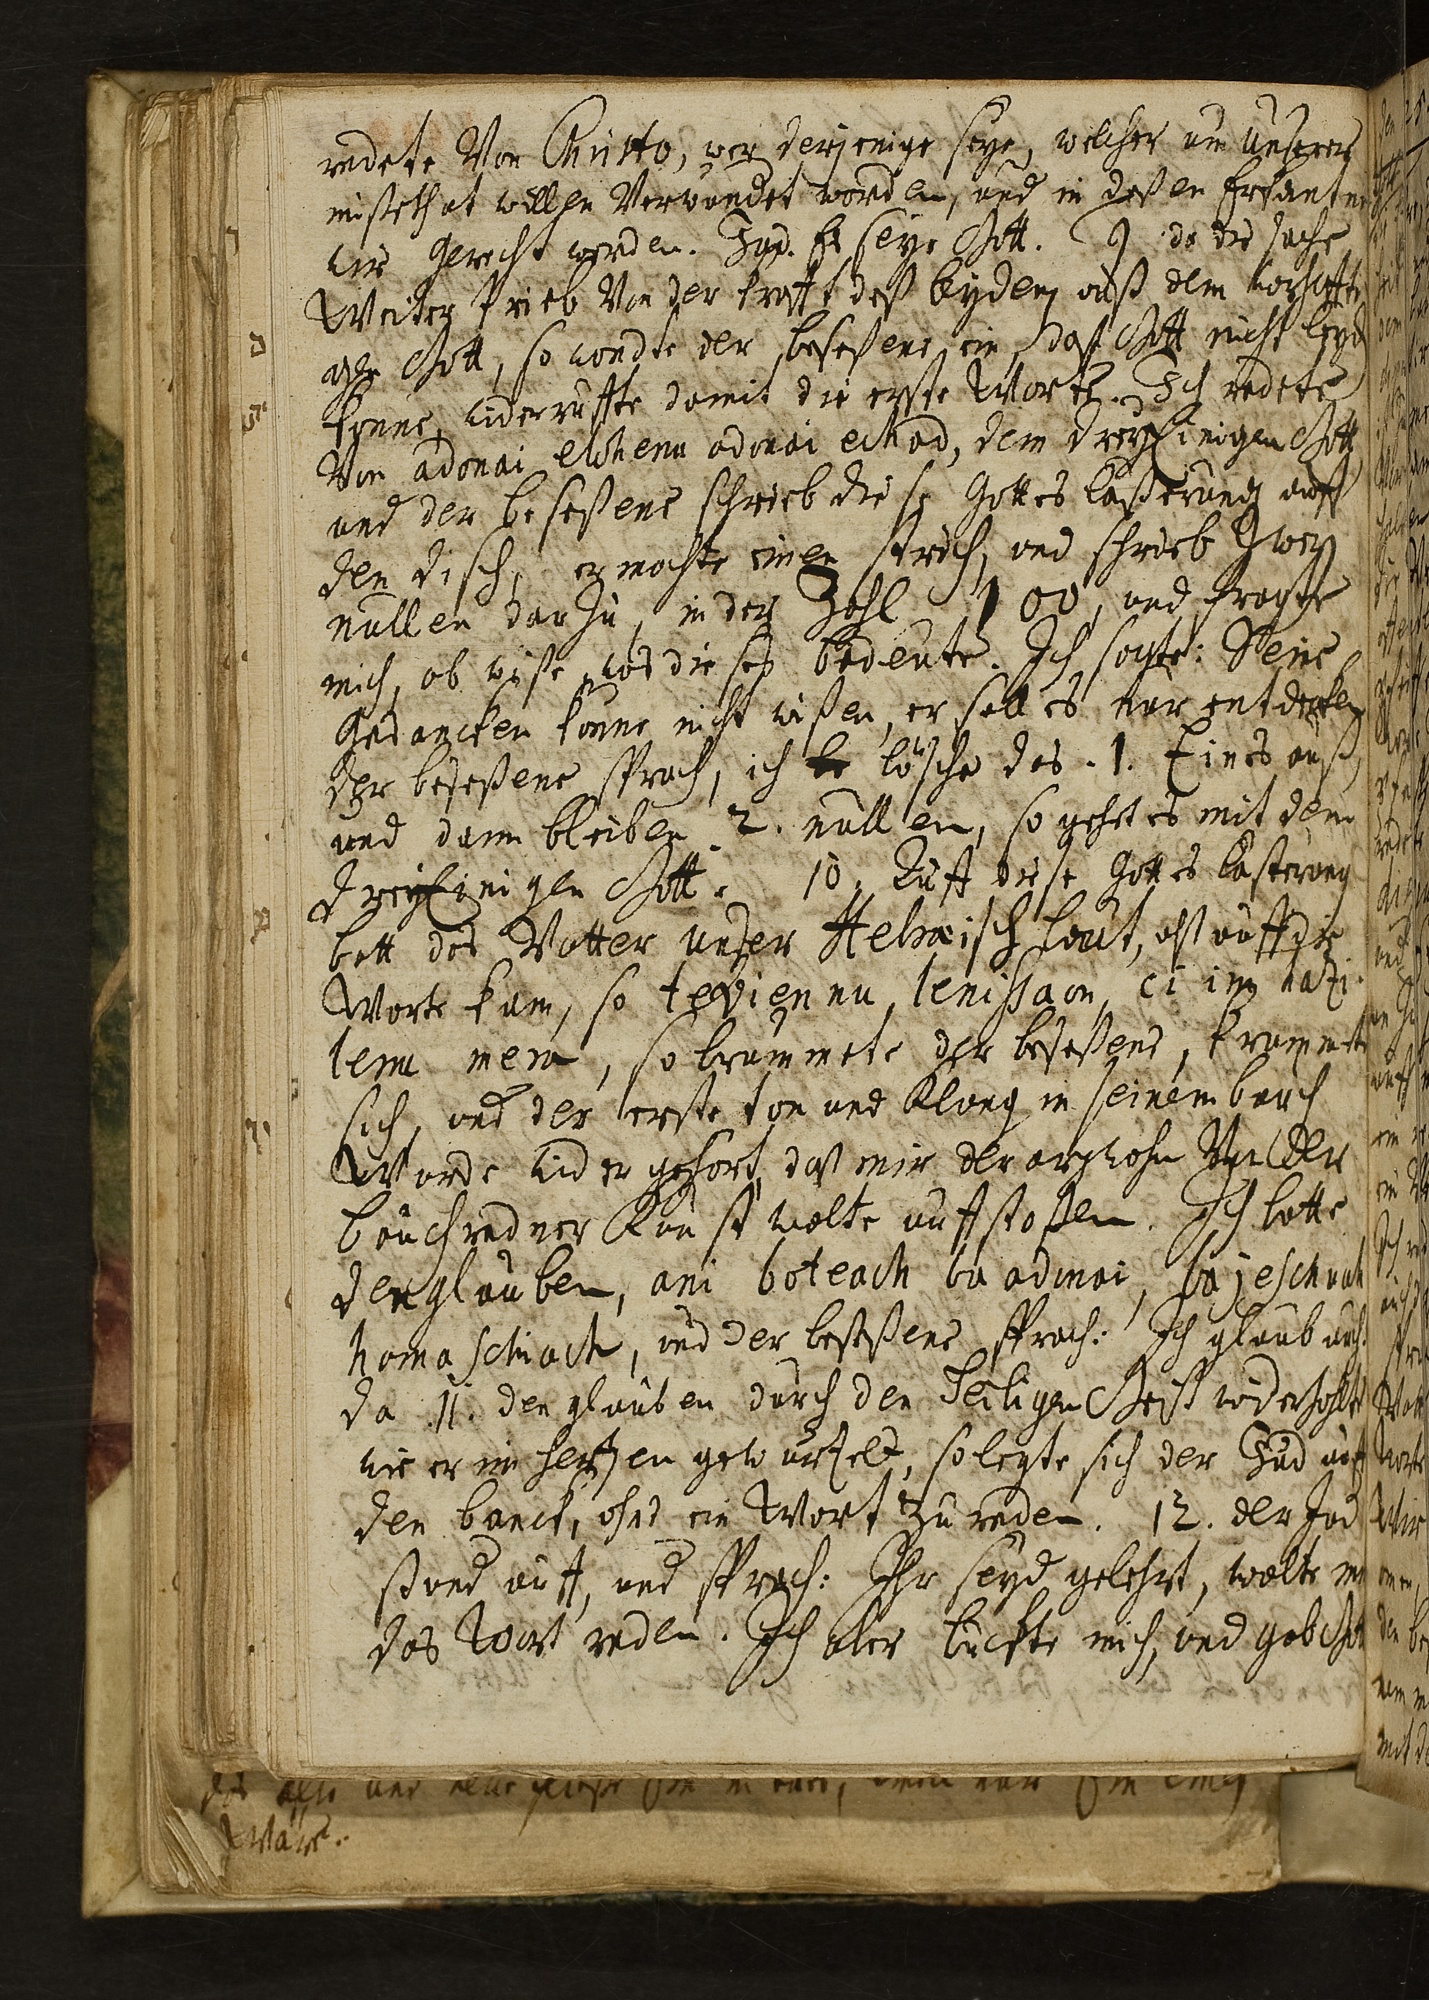 redete Von Christo, wer derjenige seye, welcher um unserer
missethat willen Verwundet worden, und in deßen Erkantnu
wir Gerecht werden. Jud. Er seye Gott. 9 da die sache
Weiter trieb Von der krafft deß leyden auß dem
gen Gott, so wandte der beseßene ein, daß Gott nicht leyd
könne, widerruffte damit die erste Worte. Ich redete
Von adonai elohenu adonai echad, dem dreyEinigen Gott
und der beseßene schrieb diese Gottes lästerung auff
den disch, er machte einen strich, und schrieb Zwey
nullen darzu, in der Zahl 100, und fragte
mich, ob wiße was dieses bedeute. Ich sagte: Seine
Gedancken könne nicht wißen, er soll es nur entdecken
der beseßene sprach, ich lösche das .1. Eines auß,
und dann bleiben 2. nullen, so gehet es mit dem
dreyEinigen Gott. 10. Auff diese Gottes lästerung
bett das Vatter unser Hebraisch laut, als auff die
Worte kam, so tefiennu, lenissaon, ci im hazi-
lenu mera, so brummete der beseßene, krummete
sich, und der erste ton und Klang in seinem bauch
Wurde wider gehört, daß mir der argwohn Von der
bauchredner Kunst wolte auffstoßen. Ich bette
den glauben, ani boteach ba adonai, bajeschuah
hamaschiach, und der beseßene sprach: Ich glaub auch.
da 11. den glauben durch den Heiligen Geist widerholte
wie er im hertzen gewurtzelt, so legte sich der Jud auf
den banck, ohne ein Wort zu reden. 12. der Jud
stund auff, und sprach: Ihr seyd gelehrt, wolte mir
das Wort reden. Ich aber bückte mich, und gab Gott
Wäre.